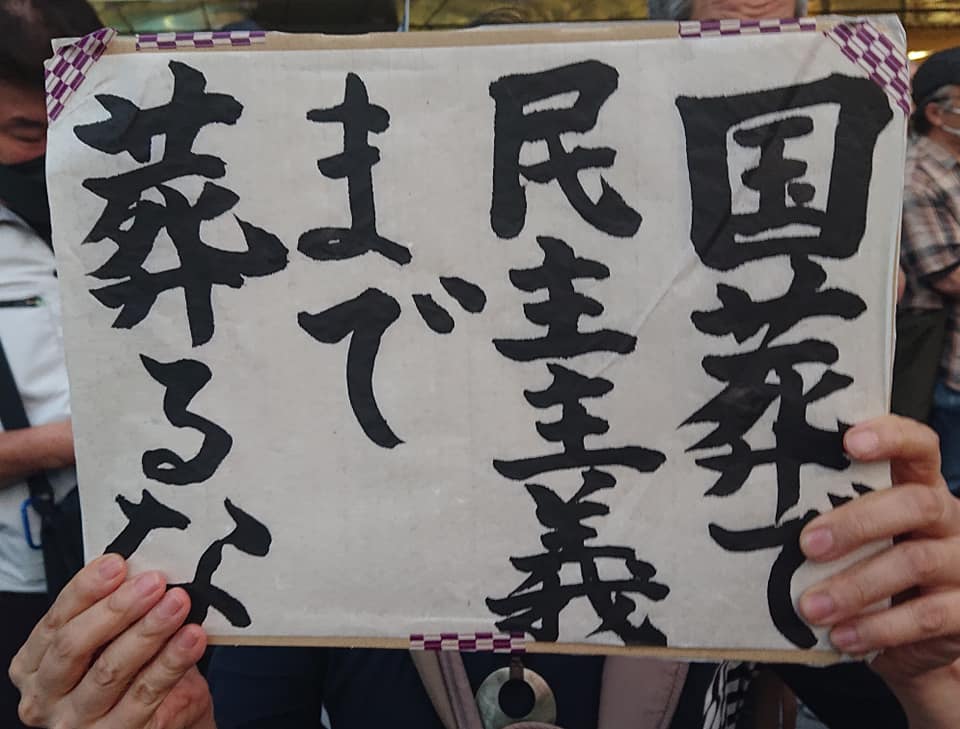 国葬で
民主主義
まで
葬るな